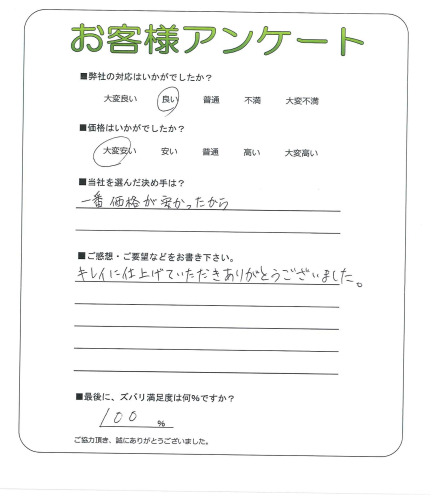 お客様アンケート
■弊社の対応はいかがでしたか？
大変良い 良い 普通 不満 大変不満
■価格はいかがでしたか？
大変安い 安い 普通 高い 大変高い
■当社を選んだ決め手は？
一番価格が安かったから
■ご感想・ご要望などをお書き下さい。
キレイに仕上げていただきありがとうございました。
■最後に、ズバリ満足度は何%ですか？
100 %
ご協力頂き、誠にありがとうございました。